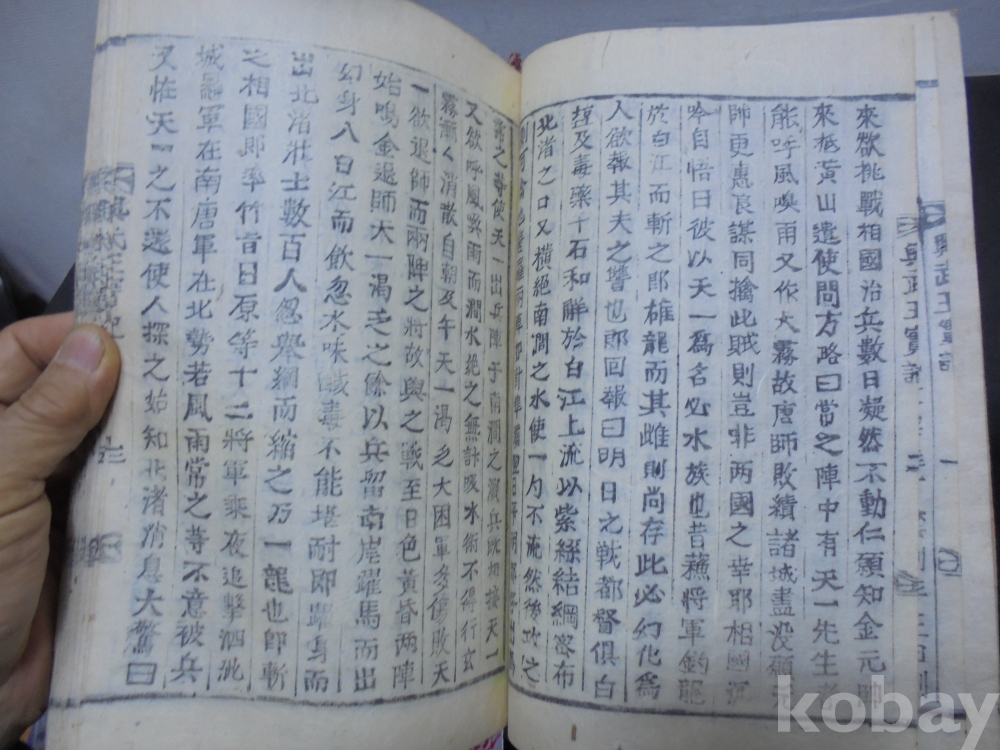 來欲挑戰相國治兵數日凝然不動仁願知金元帥
來抵黃山遣使問方略曰常之陣中有天一先生
能呼風喚雨又作大霧故唐師敗績諸城盡沒願
師更惠良謀同擒此賊則豈非两國之幸耶相國沉
吟自悟曰彼以天一爲名必水族也昔蘓將軍釣龍
於白江而斬之郎雄龍而其雌則尚存此必幻化爲
人欲報其夫之讐也郎回報曰明日之戰都督俱白
及毒藥千石和觧於白江上流以紫綠結綱密布
北渚之口又橫絕南澗之水使一勺不流然後攻之
常之等使天一出兵陣于南澗之濱兵旣相接天一
又欲呼風喚雨而澗水絶之無計吸水術不得行玄
霧漸人消散自朝及午天一渴乏大困軍多傷敗天
一欲退師而兩陣之將故與之戰至日色黃昏两陣
始鳴金退師天一渴乏之餘以兵留南崖躍馬而出
幻身入白江而飮忽水味醎毒不能堪耐即躍身而
出北渚壯士數百人忽舉綱而縮之乃一龍也卽斬
之相國郎率竹旨日原等十二將軍乘夜追擊泗沘
城羅軍在南唐軍在北勢若風雨常之等不意被兵
又恠天一之不還使人探之始知北渚消息大驚曰
興武王實記
kobay